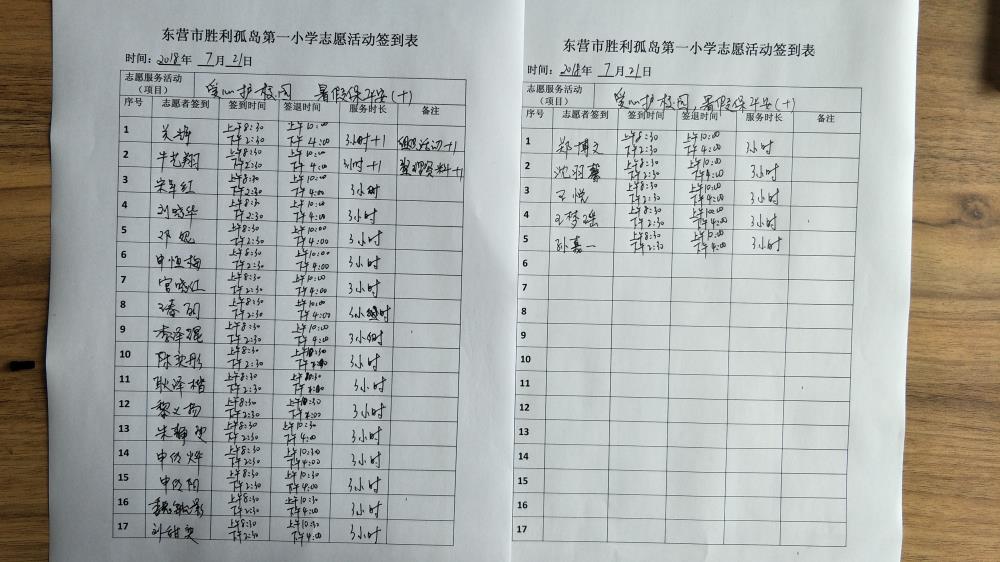 东营市胜利孤岛第一小学志愿活动签到表
时间：2018年 7月 21日
志愿服务活动（项目） 爱心护校园 暑假保平安(十)
序号 志愿者签到 签到时间 签退时间 服务时长 备注
1 上午8:30 下午2:30 上午10:00 下午4:00 3小时+1 组织活动+1
2 牛艺翔 上午8:30 下午2:30 上午10:00 下午4:00 3小时+1 整理资料+1
3 宋军红 上午8:30 下午2:30 上午10:00 下午4:00 3小时
4 刘晓华 上午8:30 下午2:30 上午10:00 下午4:00 3小时
5 邓妮 上午8:30 下午2:30 上午10:00 下午4:00 3小时
6 申恒梅 上午8:30 下午2:30 上午10:00 下午4:00 3小时
7 宫晓红 上午8:30 下午2:30 上午10:00 下午4:00 3小时
8 上午8:30 下午2:30 上午10:00 下午4:00 3小时
9 李泽强 上午8:30 下午2:30 上午10:00 下午4:00 3小时
10 陈奕彤 上午8:30 下午2:30 上午10:30 下午4:00 3小时
11 耿泽楷 上午8:30 下午2:30 上午10:30 下午4:00 3小时
12 黎义扬 上午8:30 下午2:30 上午10:30 下午4:00 3小时
13 朱静雯 上午8:30 下午2:30 上午10:30 下午4:00 3小时
14 上午8:30 下午2:30 上午10:30 下午4:00 3小时
15 上午8:30 下午2:30 上午10:30 下午4:00 3小时
16 魏敏影 上午8:30 下午2:30 上午10:30 下午4:00 3小时
17 刘甜雯 上午8:30 下午2:30 上午10:30 下午4:00 3小时
东营市胜利孤岛第一小学志愿活动签到表
时间：2018年 7月 21日
志愿服务活动（项目） 爱心护校园，暑假保平安(十)
序号 志愿者签到 签到时间 签退时间 服务时长 备注
1 郑博文 上午8:30 下午2:30 上午10:00 下午4:00 3小时
2 沈羽馨 上午8:30 下午2:30 上午10:00 下午4:00 3小时
3 王悦 上午8:30 下午2:30 上午10:00 下午4:00 3小时
4 王梦瑶 上午8:30 下午2:30 上午10:00 下午4:00 3小时
5 孙嘉一 上午8:30 下午2:30 上午10:00 下午4:00 3小时
6
7
8
9
10
11
12
13
14
15
16
17